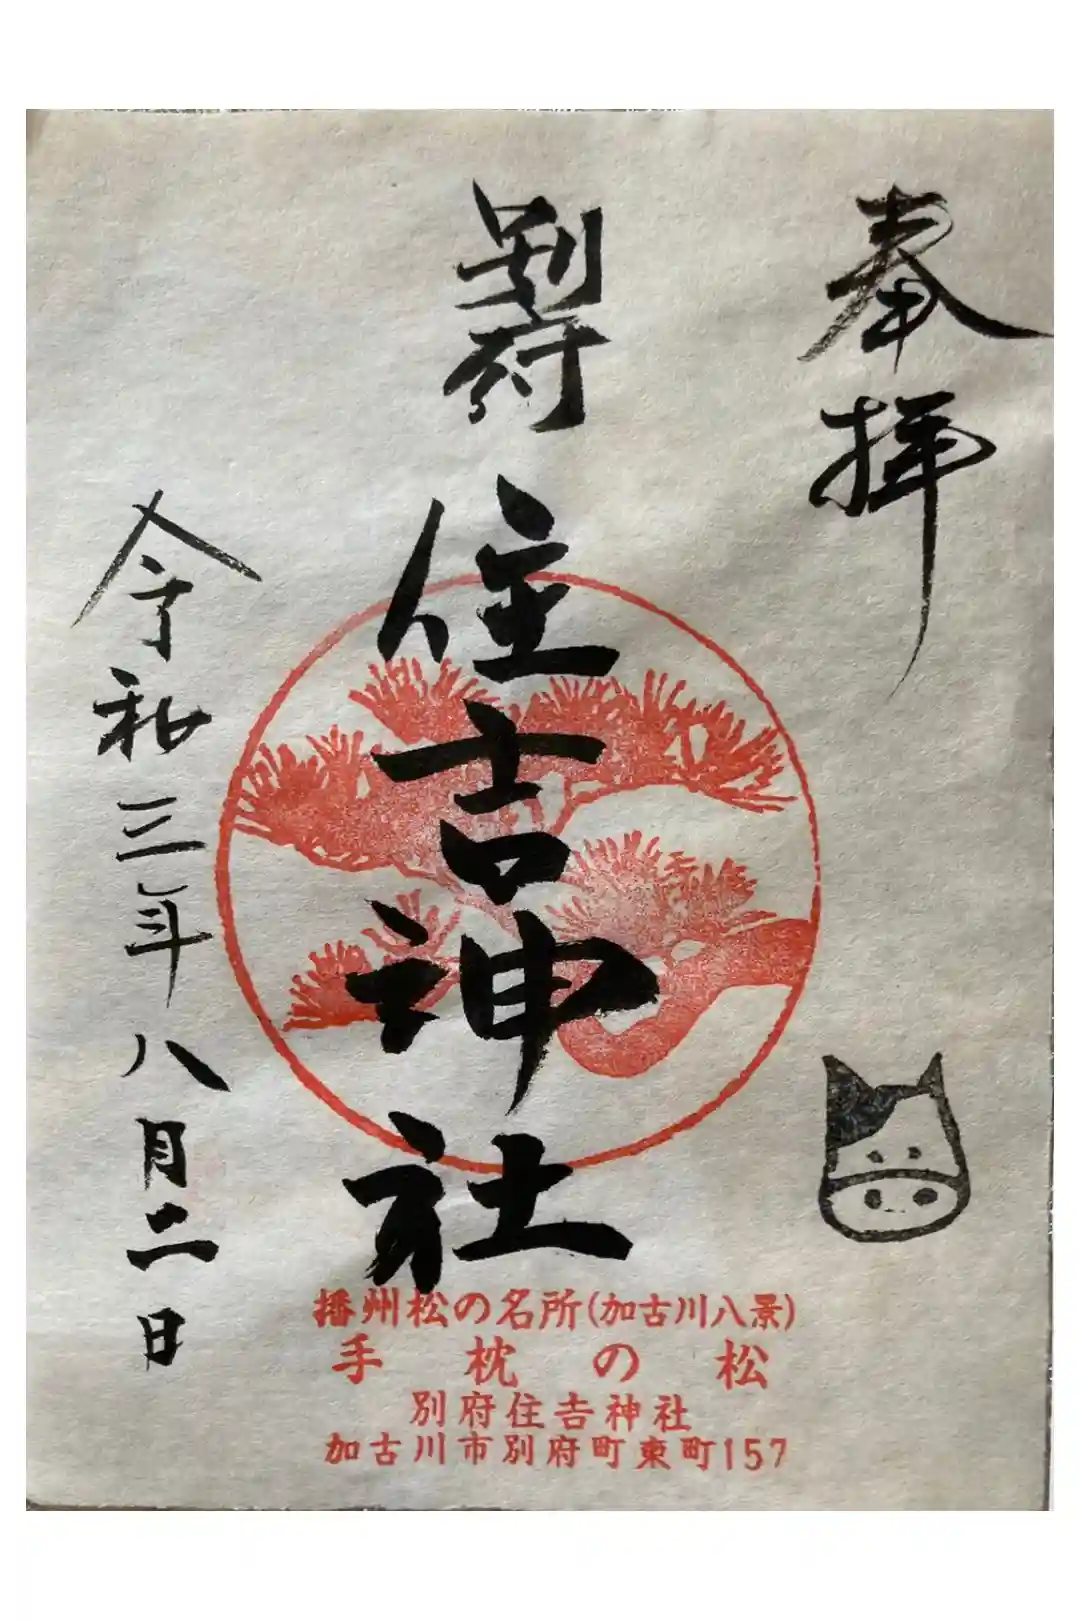 奉拝
別府
住吉神社
令和三年八月二日
播州松の名所(加古川八景)
手枕の松
別府住吉神社
加古川市別府町東町157